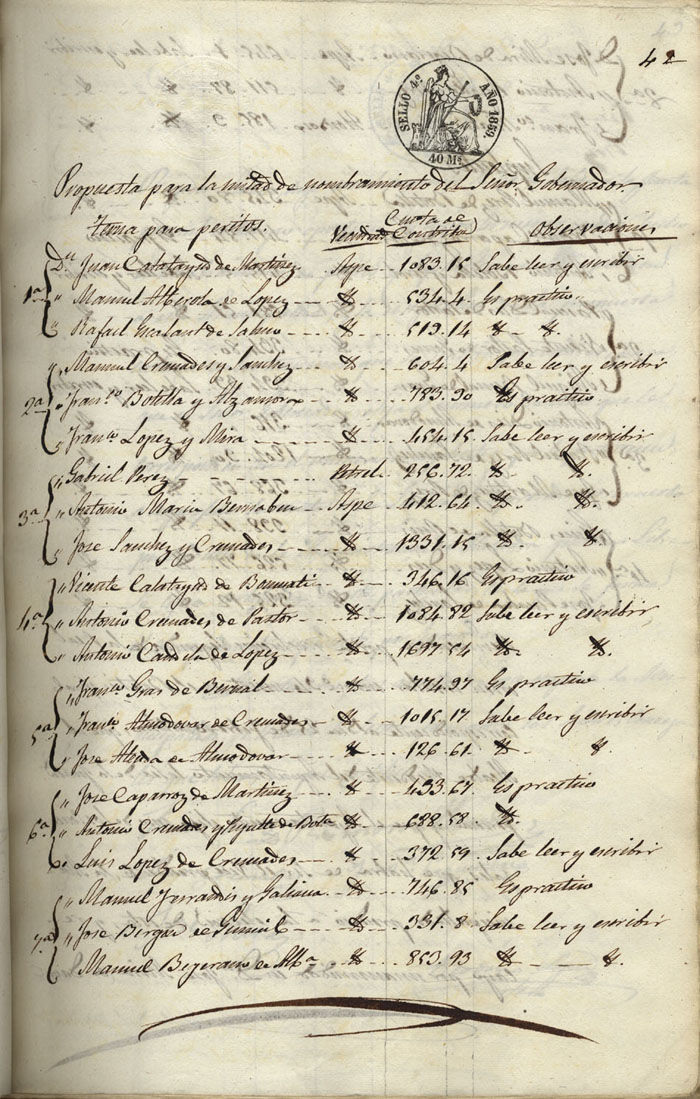 42
SELLO 4º AÑO 1859.
40 Ms
Propuesta para la mitad de nombramiento del Señor Gobernador
terna para peritos. Vecindad Cuota de Contribn Observaciones
1a Dn Juan Calatayud de Martinez Aspe 1083.15 Sabe leer y escribir
" Manuel Alberola de Lopez 534.4 Es practico
" Rafael de 513.14
2a " Manuel Cremades y Sanchez 604.4 Sabe leer y escribir
" Franco Botella y Alzamora 783.90 Es practico
" Franco Lopez y Mira 454.15 Sabe leer y escribir
3a " Gabriel Perez Petrel 256.72
" Antonio Maria Bernabeu Aspe 412.64
" Jose Sanchez y Cremades 1331.15
4a " Vicente Calatayud de 346.16 Es practico
" Antonio Cremades de Pastor 1084.82 Sabe leer y escribir
" Antonio Candela de Lopez 1697.54
5a " Franco Gras de Bernal 774.97 Es practico
" Franco Almodovar de Cremades 1015.17 Sabe leer y escribir
" Jose de Almodovar 126.61
6a " Jose Caparroz de Martinez 433.67 Es practico
" Antonio Cremades y de 688.58
" Luis Lopez de Cremades 372.59 Sabe leer y escribir
7a " Manuel y Galiana 746.85 Es practico
" Jose de 331.8 Sabe leer y escribir
Manuel de 853.93